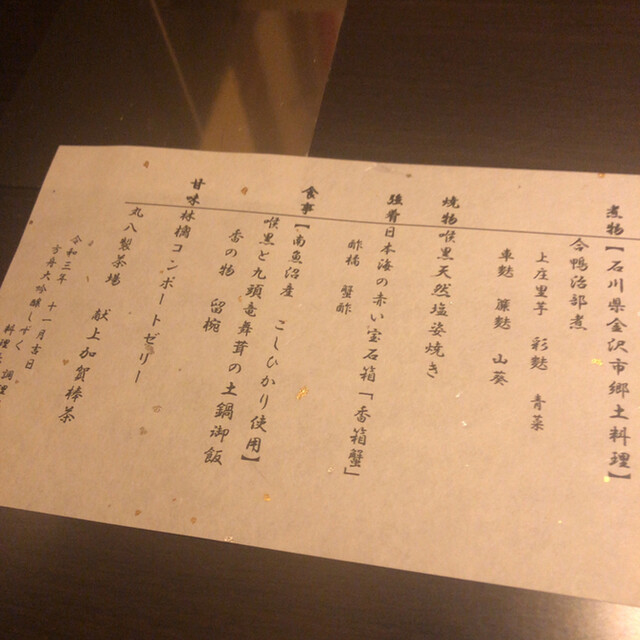 煮物【石川県金沢市郷土料理】
合鴨治部煮
上庄里芋 彩麩 青菜
車麩 簾麩 山葵
焼物 喉黒天然塩姿焼き
強肴 日本海の赤い宝石箱「香箱蟹」
酢橘 蟹酢
食事【南魚沼産 こしひかり使用】
喉黒と九頭竜舞茸の土鍋御飯
香の物 留椀
甘味 林檎コンポートゼリー
丸八製茶場 献上加賀棒茶
令和三年 十一月吉日
大吟醸しずく
料理長 調理